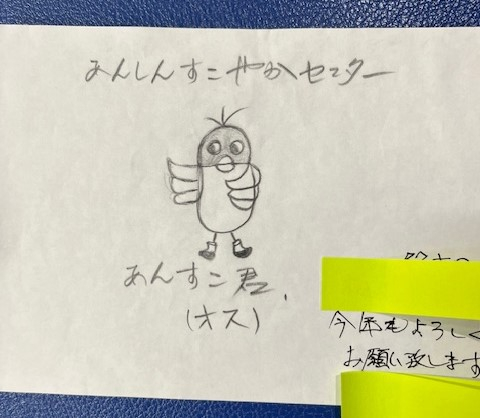 あんしんすこやかセンター
あんすこ君、
(オス)
今年もよろしく
お願い致します